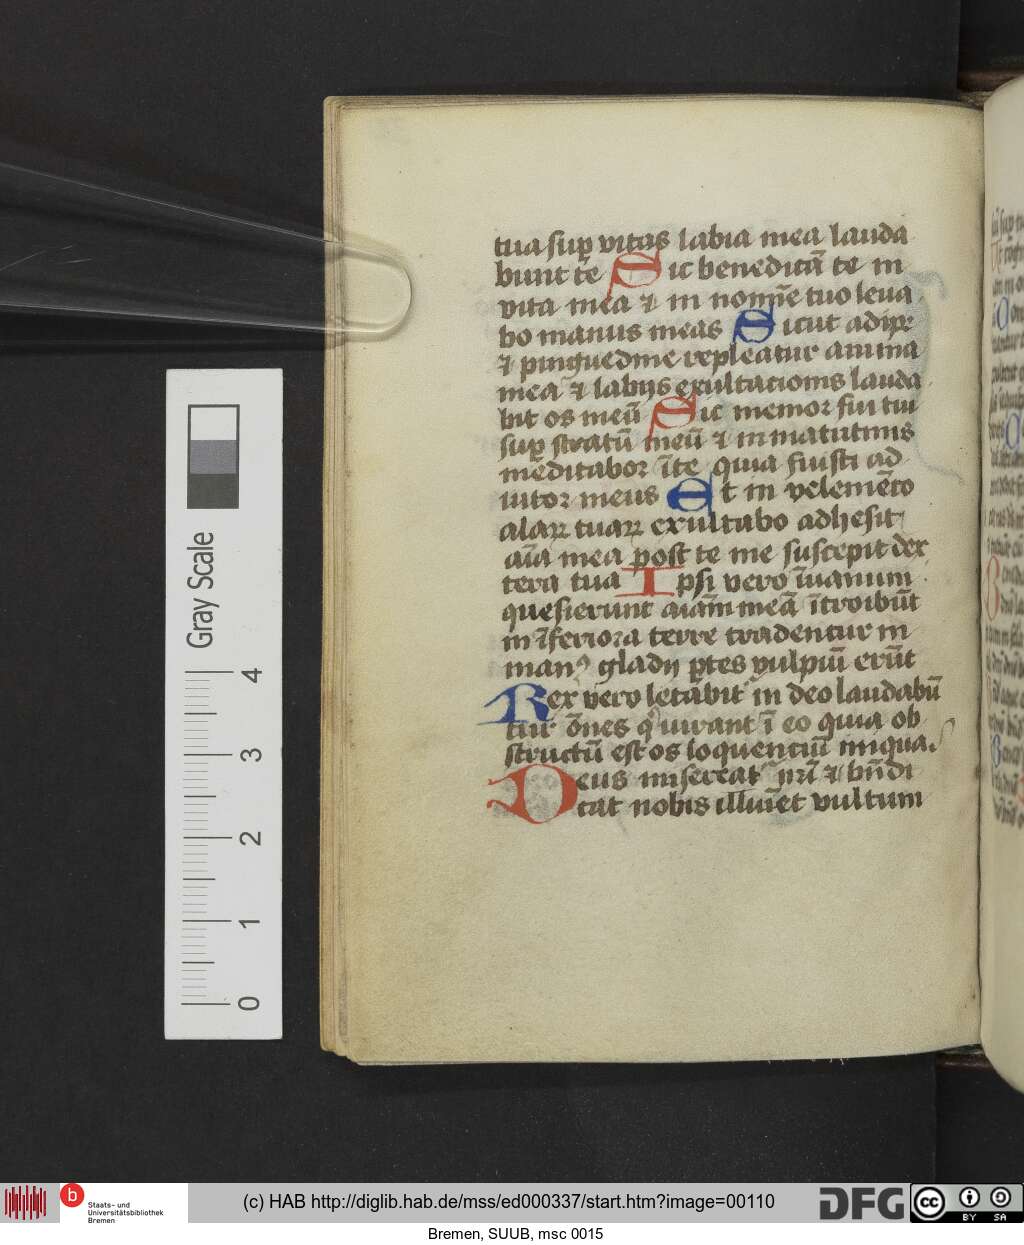 tua sup vitas labia mea lauda
bunt te Sic benedicā te in
vita mea ⁊ in noīe tuo leua
bo manus meas Sicut adipe
⁊ pinguedine repleatur anima
mea ⁊ labijs exultacionis lauda
bit os meū Sic memor fui tui
sup stratū meū ⁊ in matutinis
meditabor īte quia fuisti ad
iutor meus Et in velemēto
alaꝝ tuaꝝ exultabo adhesit
aīa mea post te me suscepit dex
tera tua Ipsi vero īuanum
quesierunt aīam meā ītroibūt
in īferiora terre tradentur in
man⁹ gladij ptes vulpiū erūt
Rex vero letabit in deo laudabū
tur ōnes q iurant ī eo quia ob
structū est os loquenciū iniqua.
Deus misereat nrī ⁊ bn̄di
cat nobis illuīet vultum
Gray Scale
4
3
2
1
0
b Staats- und
Universitätsbibliothek
Bremen
(c) HAB http://diglib.hab.de/mss/ed000337/start.htm?image=00110
DFG
cc BY SA
Bremen, SUUB, msc 0015